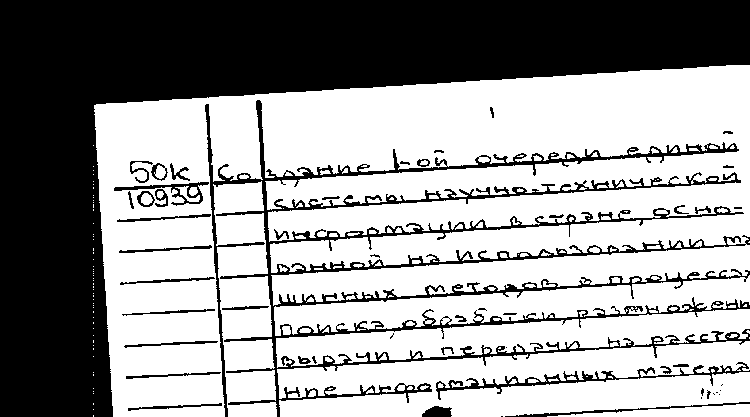 50к Создание 1-ой очереди единой
10939 системы научно-технической
информации в стране, осно-
ванной на использовании ма
шинных методов в процессах
поиска, обработки, размножени
выдачи и передачи на расстоя
ние информационных материа